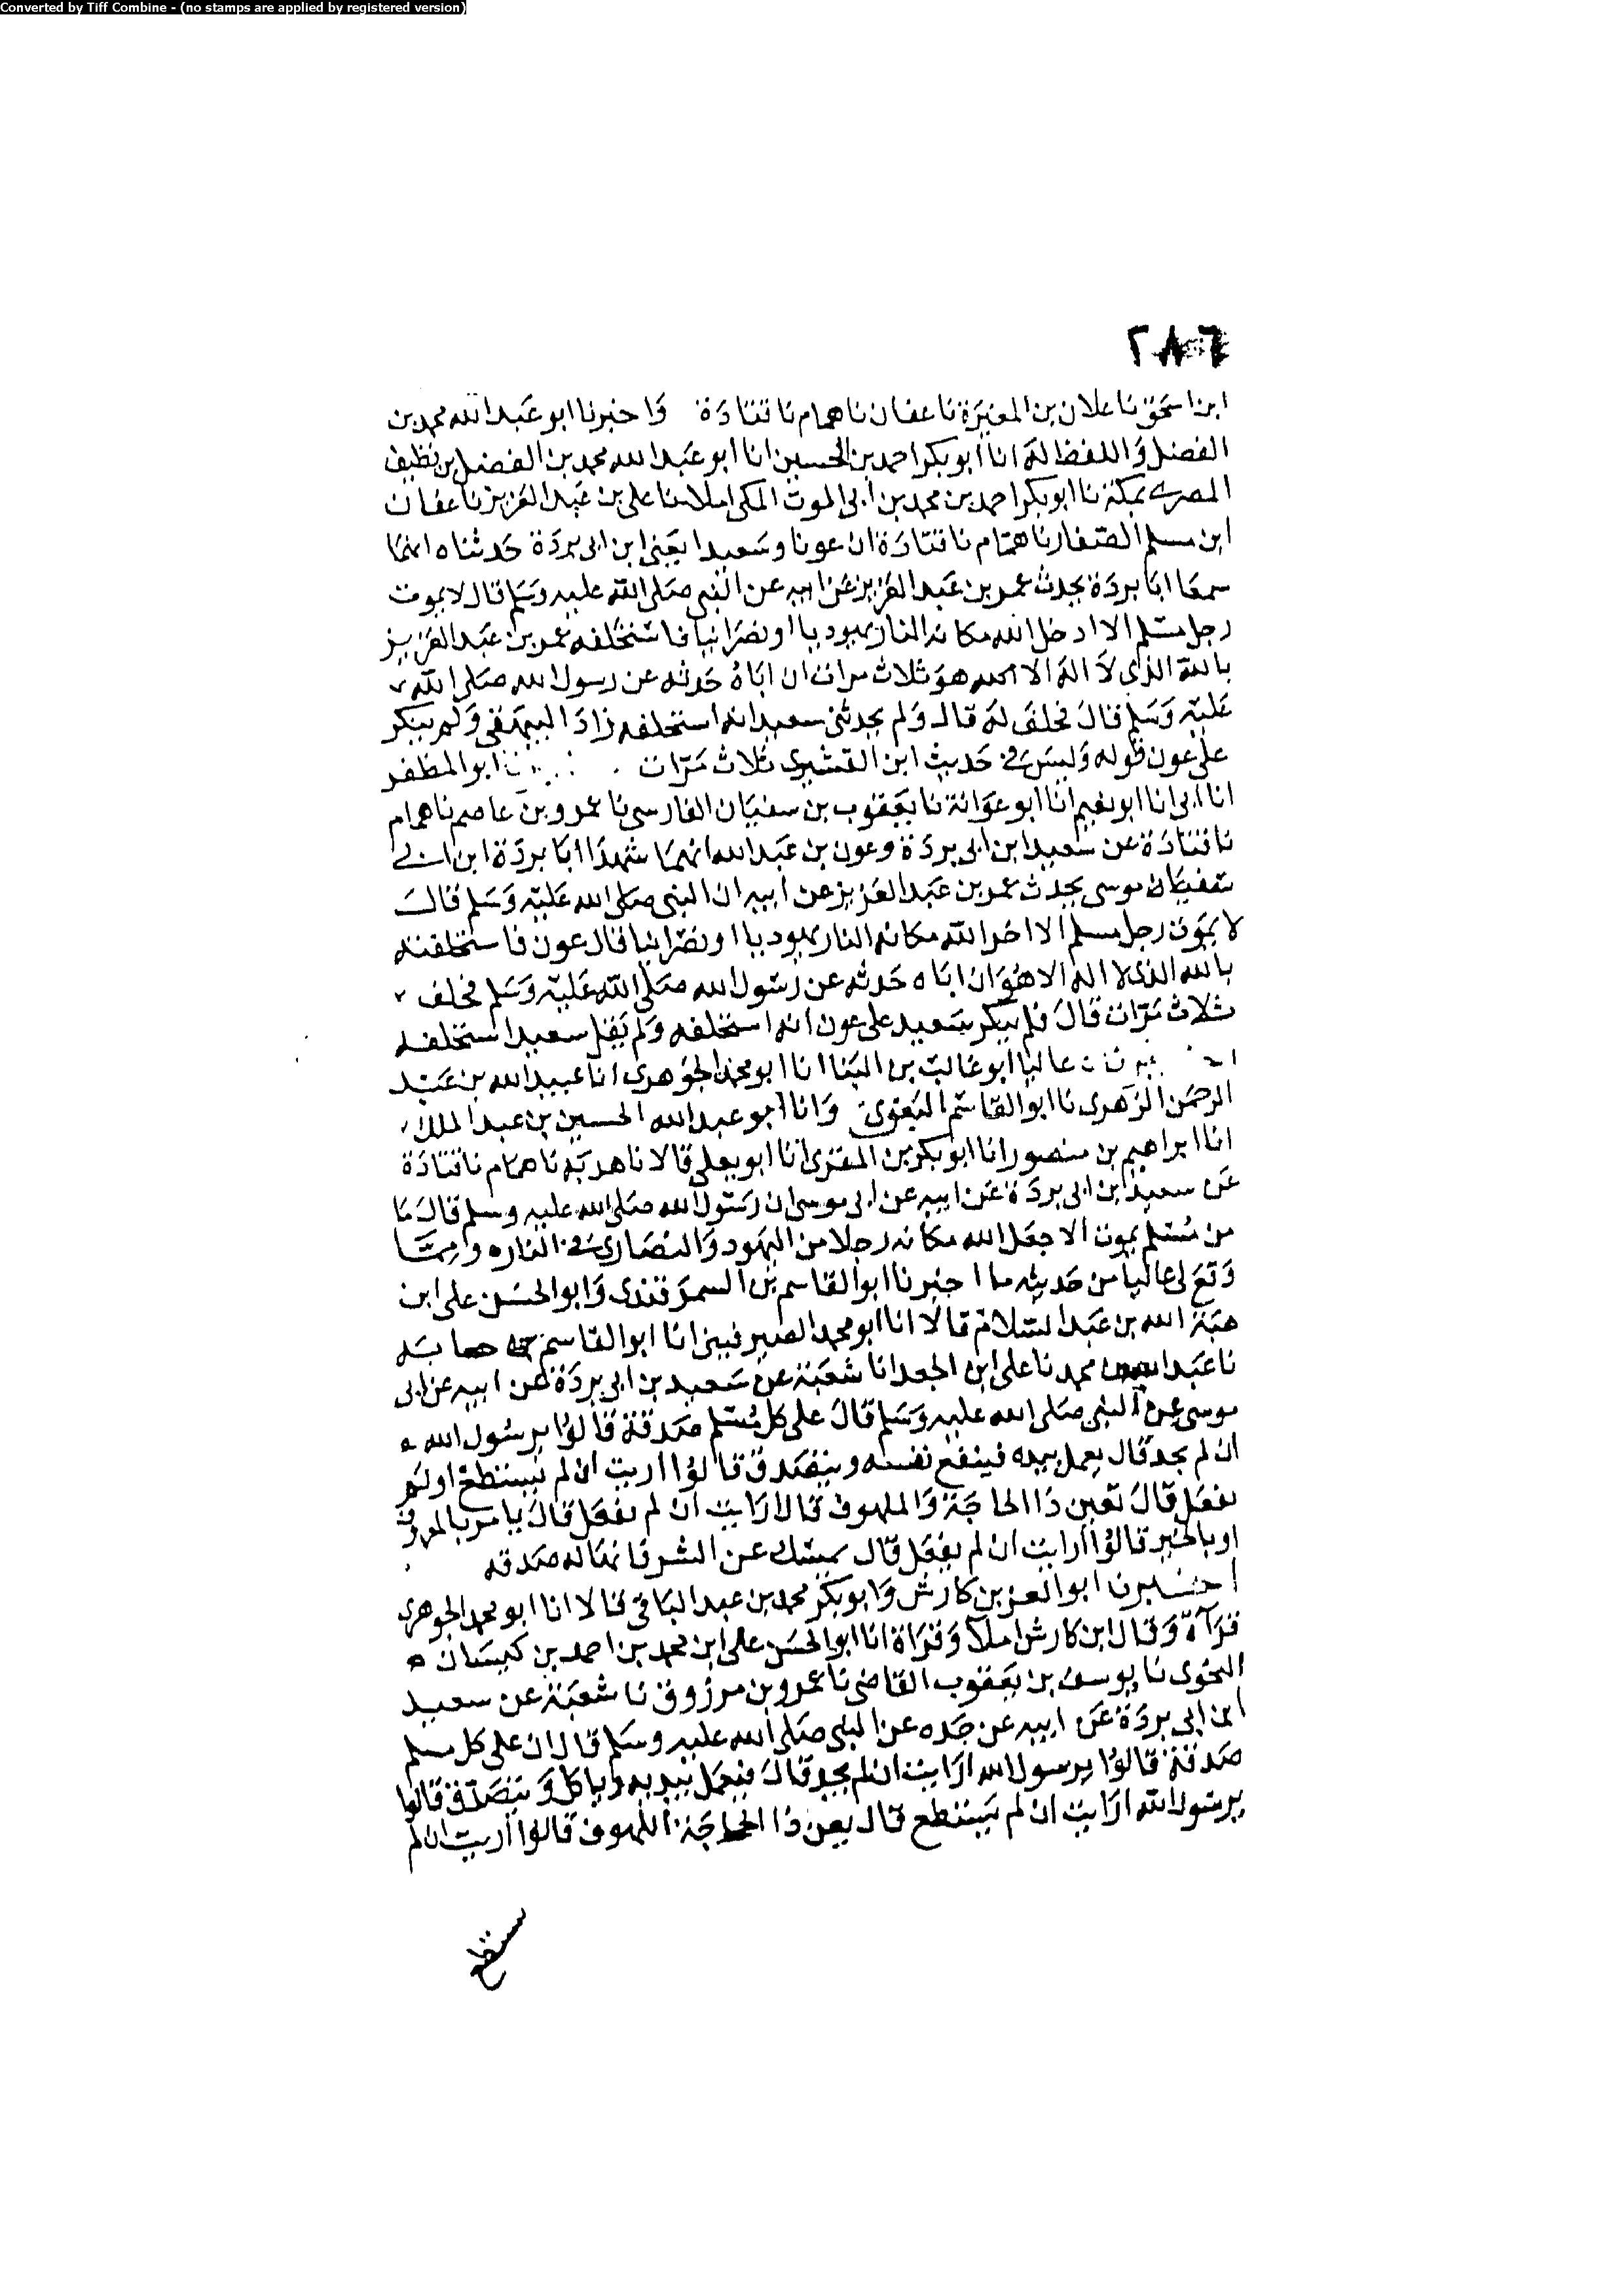 Converted by Tiff Combine - (no stamps are applied by registered version)
٢٨٦
ابن اسحق نا علان بن المغيرة نا عفان نا همام نا قتادة وَاخبرنا ابو عَبد الله محمد بن
الفضل وَاللفظ لهُ انا ابو بكر احمد بن الحسين انا ابو عَبد الله محمد بن الفضل بن نظيف
المصري بمكة نا ابو بكر احمد بن محمد بن ابى الموت المكى املا نا على بن عَبد العَزيز نا عفان
ابن مسلم الصفار نا همّام نا قتادَة ان عونا وسَعيدا يعَنى ابن ابى بردَة حَدثناه انهمَا
سمعَا ابَا بردَة يحدث عمر بن عَبد العَزيز عَن ابيه عن النبى صَلى الله عليه وَسَلم قال لا يموت
رجل مسَلم الا ادخل الله مكانه النار يهوديا او نصرَانيا فاستحَلفه عمر بن عَبد العَزيز
بالله الذى لاَ الهَ الا هوَ ثلاث مرات ان ابَاهُ حَدثه عن رسول الله صَلى الله
عَليه وَسَلم قالَ فحلفَ لهُ قال وَلم يحدثنى سعيد انه استحلفه زادَ البيهقى وَلم ينكر
على عون قوله وَليسَ فى حَديث ابن القشيرى ثلاث مَرّات ابو المظفر
انا ابى انا ابو نعيم انا ابو عوَانة نا يعَقوب بن سفيَان الفارسى نا عمرو بن عاصم نا همام
نا قتادَة عن سَعيد ابن ابى بردَة وعون بن عَبد الله انهمَا شهدَا ابَا بردَة ابن ابى
موسى يحدث عمر بن عَبد العَزيز عن ابيه ان النبى صَلى الله عَليه وَسَلم قالَ
لا يموَت رجل مسلم الا اخرَ الله مكانه النار يهوديا او نصرَانيا قال عون فاستحلفته
بالله الذى لا اله الا هُوَ ان ابَاه حَدثه عن رَسَول الله صَلى الله عَليه وَسَلم فحلف
ثلاث مَرّات قالَ فلم ينكر سَعيد على عون انه استحلفه وَلم يَقل سعيد استحلفه
عاليا ابو غالب بن البَنا انا ابو محمد الجوَهرى انا عبيد الله بن عَبد
الرحمَن الزَهرى نا ابو القاسَم البَغوى وَانا ابو عبد الله الحسين بن عبد الملك
انا ابراهيم بن منصور انا ابو بكر بن المقرى انا ابو يعلى قالا نا هدبَة نا همام نا قتادَة
عَن سعيد ابن ابى بردَة عَن ابيه عن ابى موسى ان رَسَول الله صَلى الله عليه وسلم قالَ مَا
من مُسَلم يموت الا جعَل الله مكانه رجلا من اليهود وَالنصَارىَ فى النار وَمِمّا
وَقعَ لى عاليا من حَديثه ما اخبرنا ابو القاسم بن السمرَقندى وَابو الحسَن على ابن
هبَة الله بن عَبد السَلام قالا انا ابو محمد الصريفينى انا ابو القاسم حبابَه
نا عَبد الله محمد نا على ابن الجعد انا شعَبَة عن سَعيد بن ابى بردَة عن ابيه عن ابى
موسى عن النبى صَلى الله عليه وَسَلم قالَ على كل مُسَلم صَدقة قالوُا يرسُول الله
ان لم يجد قال يعمل بيده فينفع نفسه ويتصَدق قالوُا اريت ان لم يَستطع او لم
يفعَل قالَ تعين ذا الحاجَة وَالملهوف قالا ارَايت ان لم يفعَل قالَ يامر بالمعروف
او بالخير قالوُا ارايت ان لم يفعَل قال يمسك عن الشر فانهَا له صَدقه
اخبرنا ابو العز بن كادش وَابو بَكر محمد بن عبد البَاقى قالا انا ابو محمد الجوهرى
قرَآة وَقال ابن كادش املا وَقرَاة انا ابو الحسَن على ابن محمد بن احمد بن كيسَان
النحَوى نا يوسف بن يعَقوب القاضى نا عمرو بن مرزوق نا شعَبَة عن سعيد
ابن ابى بردَة عَن ابيه عن جَده عن النبى صَلى الله عليه وسَلم قال ان على كل مسلم
صَدقة قالوُا يرسول الله ارَايت ان لم يجد قالَ فيعمل بيديه وياكل وَيتصَدق قالوا
يرسَول الله ارَايت ان لم يَستطع قال يعين ذا الحاجَة الملهوف قالوُا اريت ان لم